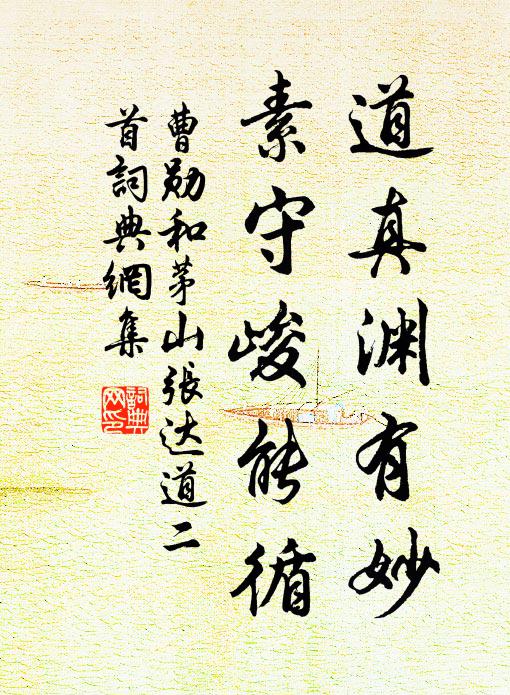 道真渊有妙
素守峻能循
曹勋和茅山张达道二
首詞典網集
詞典网印